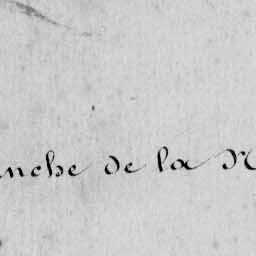 anche de la